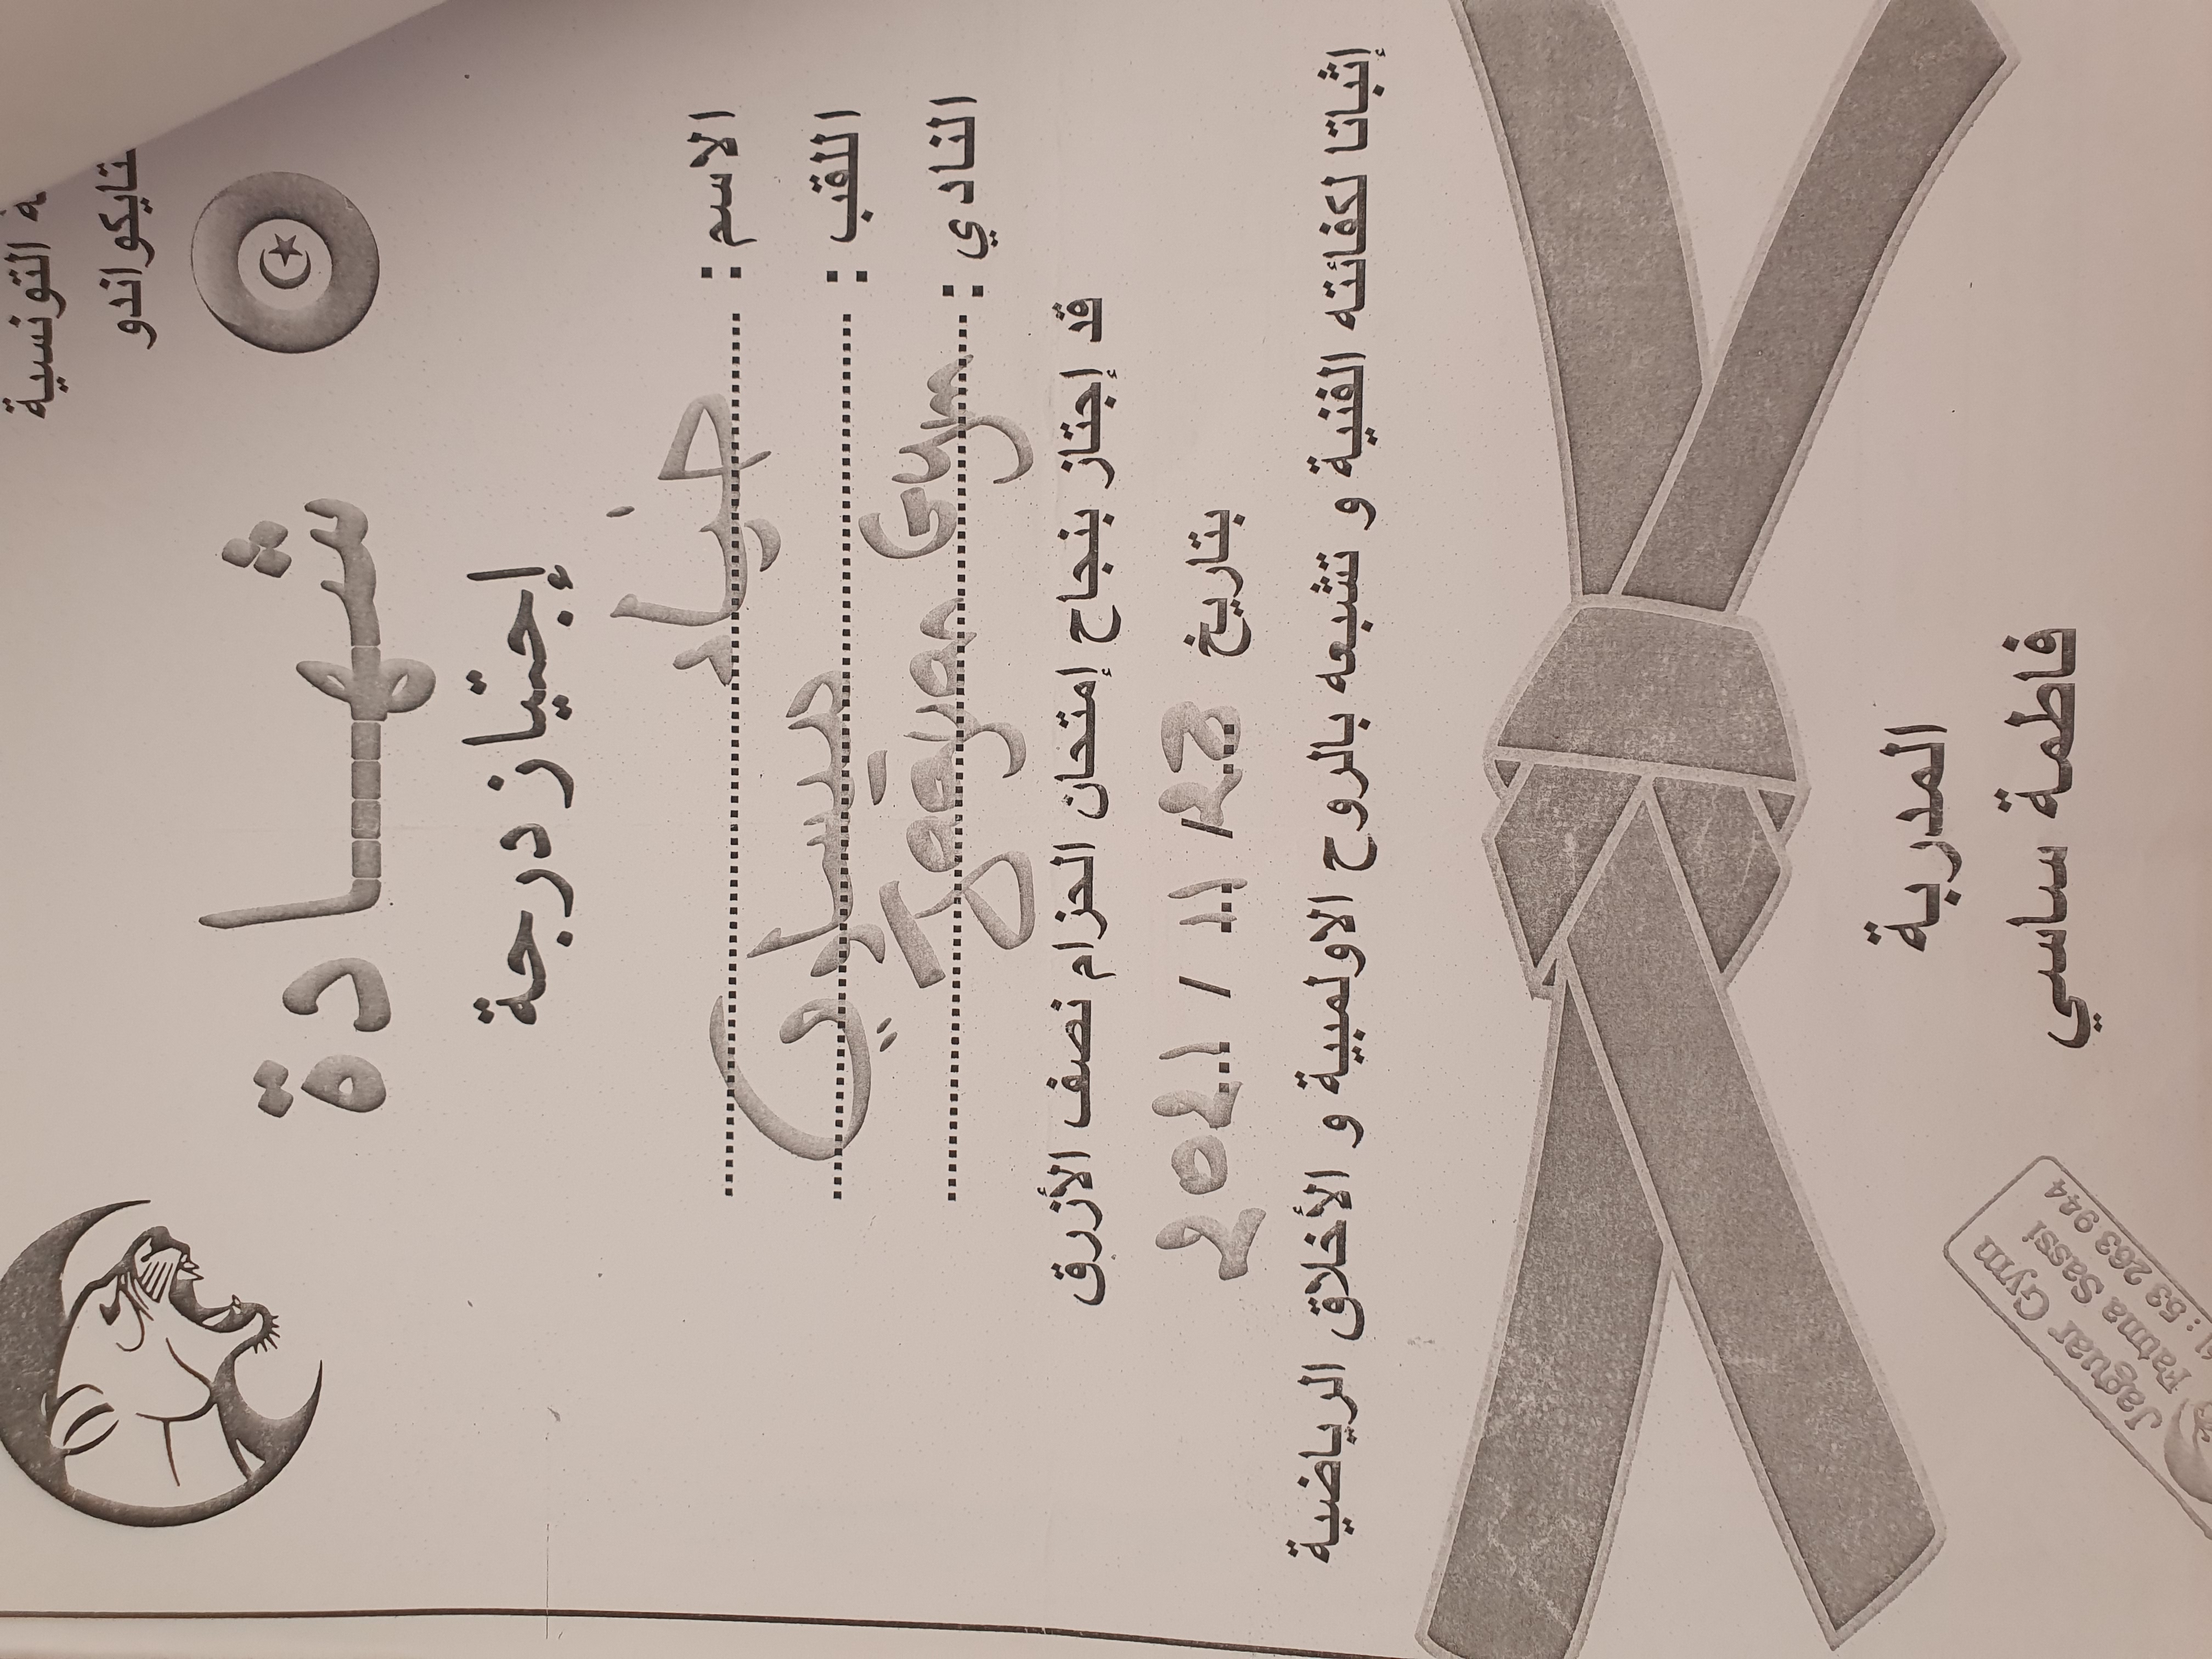 ة التونسية
تايكواندو
شهـــــادة
إجتياز درجة
الاسم :
اللقب :
النادي : Jaguar Gym
قد إجتاز بنجاح إمتحان الحزام نصف الأزرق
بتاريخ 28 / 11 / 2021
إثباتا لكفائته الفنية و تشبعه بالروح الاولمبية و الأخلاق الرياضية
المدربة
فاطمة ساسي
Jaguar Gym
Fatma Sassi
: 53 263 944